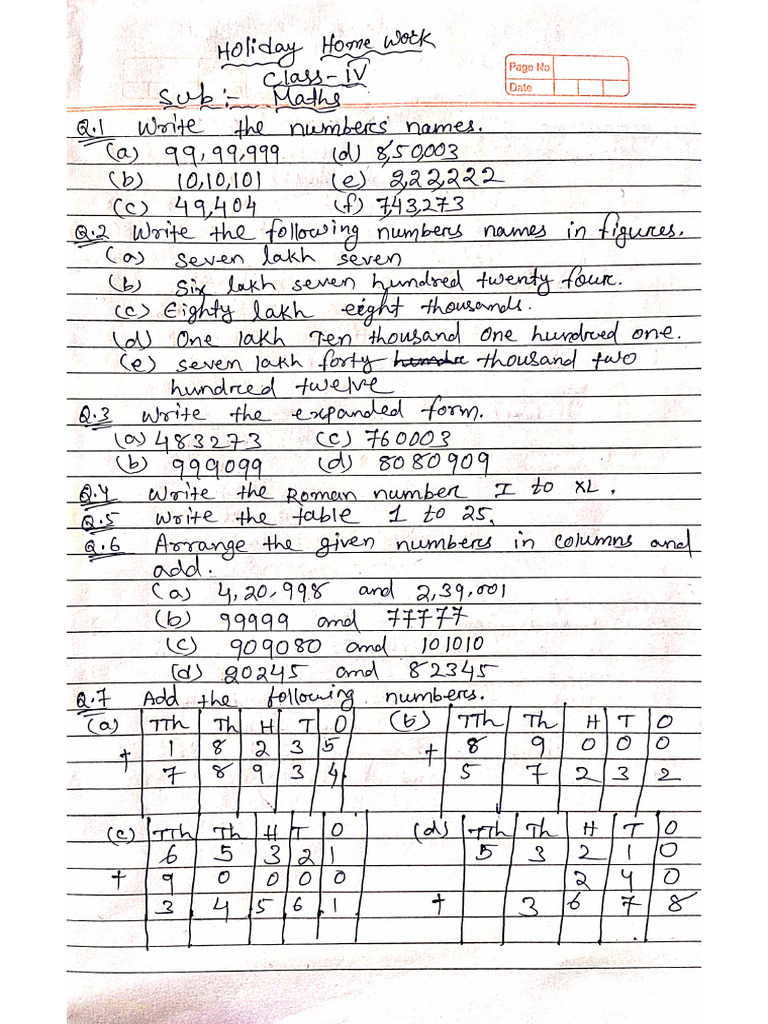 Holiday Home Work
Class-IV
Page No
Date
Sub:- Maths
Q.1 Write the numbers names.
(a) 99,99,999 (d) 8,50,003
(b) 10,10,101 (e) 2,22,222
(c) 49,404 (f) 7,43,273
Q.2 Write the following numbers names in figures.
(a) seven lakh seven
(b) Six lakh seven hundred twenty four.
(c) Eighty lakh eight thousands.
(d) One lakh Ten thousand one hundred one.
(e) seven lakh forty thousand two
hundred twelve
Q.3 Write the expanded form.
(a) 483273 (c) 760003
(b) 999099 (d) 8080909
Q.4 Write the Roman number I to XL.
Q.5 Write the table 1 to 25.
Q.6 Arrange the given numbers in columns and
add.
(a) 4,20,998 and 2,39,001
(b) 99999 and 77777
(c) 909080 and 101010
(d) 20245 and 82345
Q.7 Add the following numbers.
(a) TTh Th H T O (b) TTh Th H T O
+ 1 8 2 3 5 + 8 9 0 0 0
7 8 9 3 4 5 7 2 3 2
(c) TTh Th H T O (d) TTh Th H T O
6 5 3 2 1 5 3 2 1 0
+ 9 0 0 0 0 2 4 0
3 4 5 6 1 + 3 6 7 8